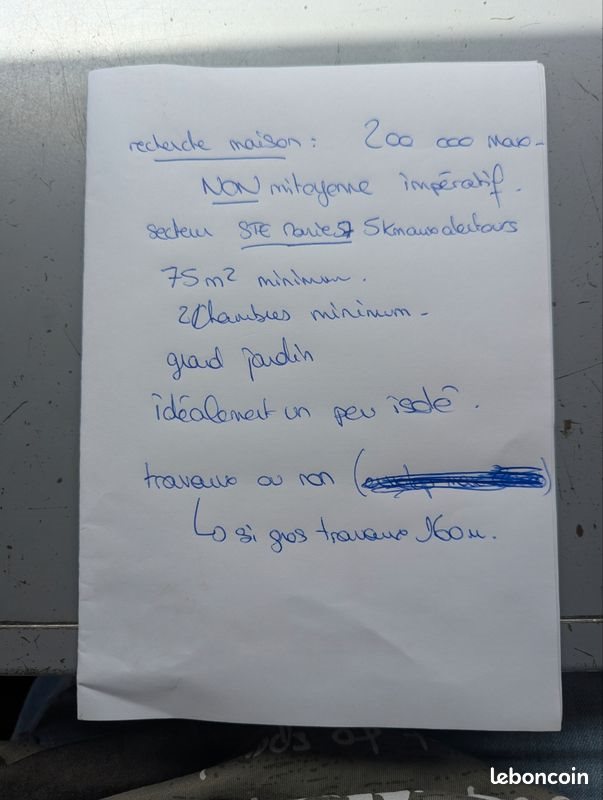 recherche maison : 200 000 max -
NON mitoyenne impératif .
secteur STE Marie 5km aux alentours
75 m² minimum .
2 chambres minimum -
grand jardin
idéalement un peu isolé .
travaux ou non ( )
↳ si gros travaux 160 m .
leboncoin